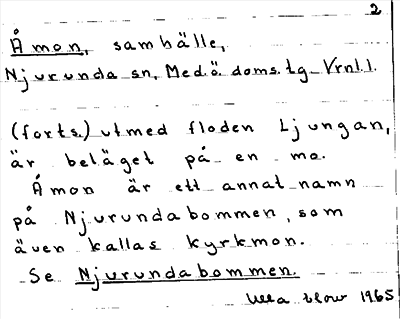 2
Åmon, samhälle,
Njurunda sn, Med.ö. doms.tg Vrnl.l.
(forts.) utmed floden Ljungan,
är beläget på en mo.
Åmon är ett annat namn
på Njurundabommen, som
även kallas kyrkmon.
Se Njurundabommen.
Ulla 1965